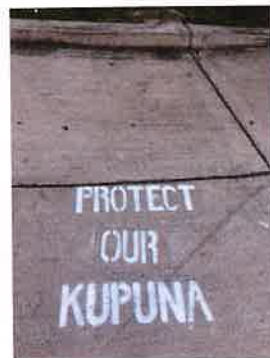 PROTECT
OUR
KUPUNA